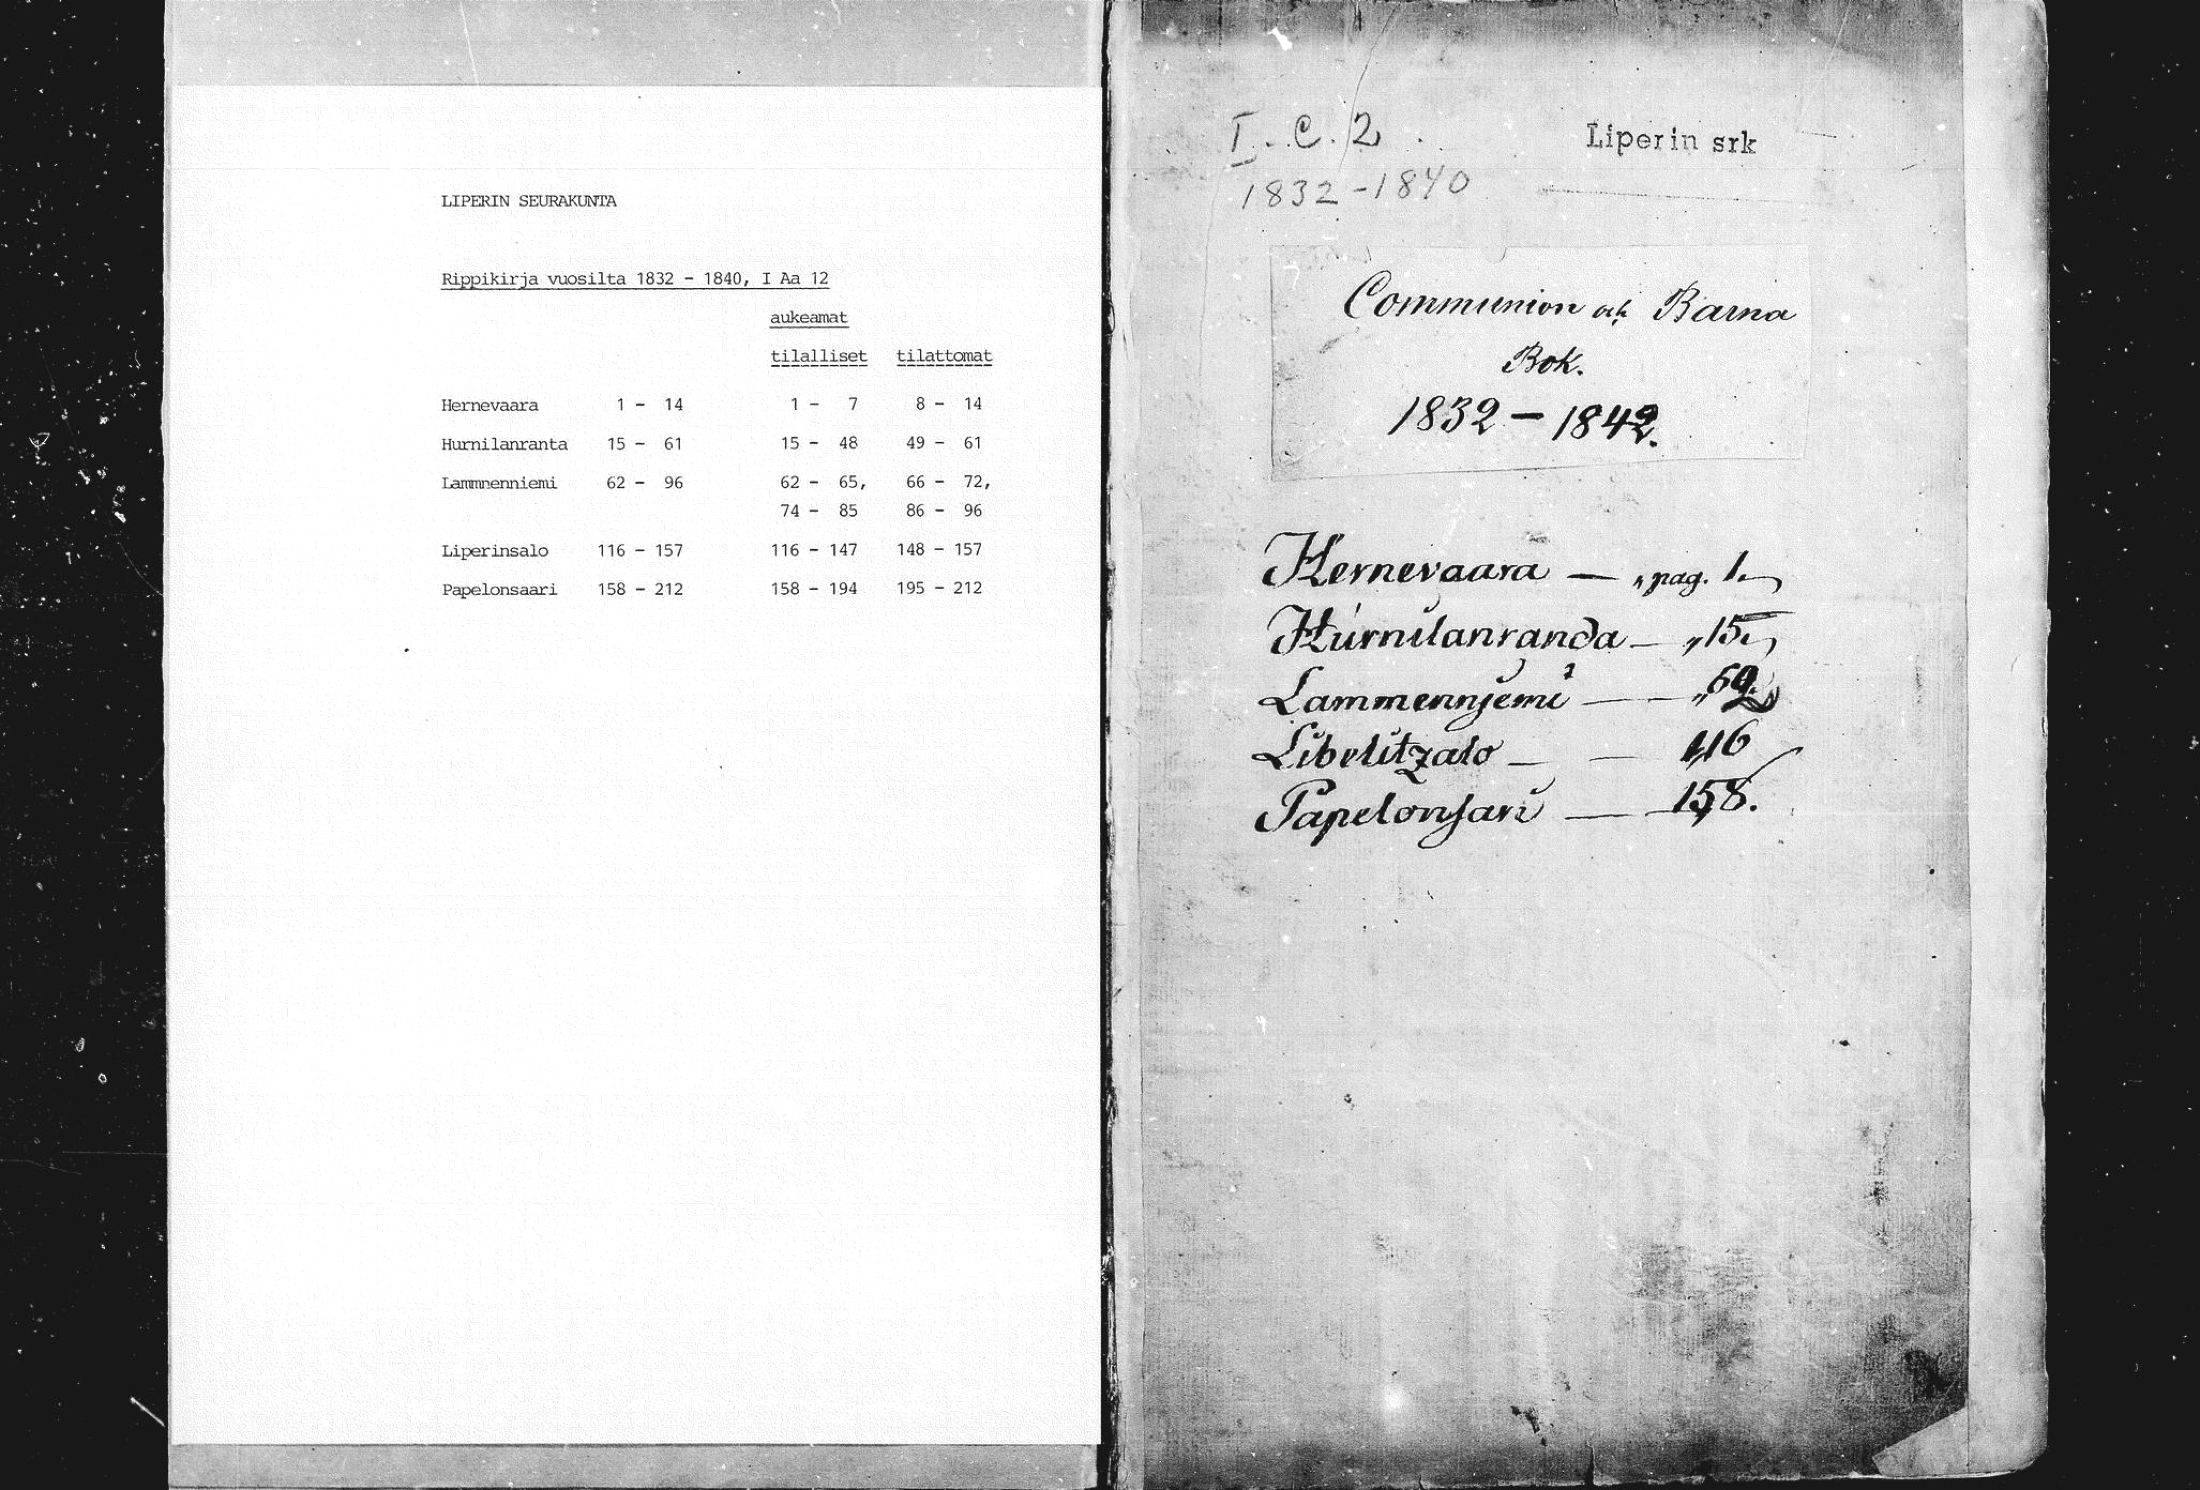 LIPERIN SEURAKUNTA
Rippikirja vuosilta 1832 - 1840, I Aa 12
aukeamat
tilalliset tilattomat
Hernevaara 1 - 14 1 - 7 8 - 14
Hurnilanranta 15 - 61 15 - 48 49 - 61
Lammnenniemi 62 - 96 62 - 65, 66 - 72,
74 - 85 86 - 96
Liperinsalo 116 - 157 116 - 147 148 - 157
Papelonsaari 158 - 212 158 - 194 195 - 212
I. C. 2
Liperin srk
1832 - 1840
Communion och Barna
Bok.
1832 - 1842.
Hernevaara — „pag. 1.
Hurnilanranda — „15.
Lammennjemi — „62.
Libelitzalo — — 116
Papelonsari — 158.